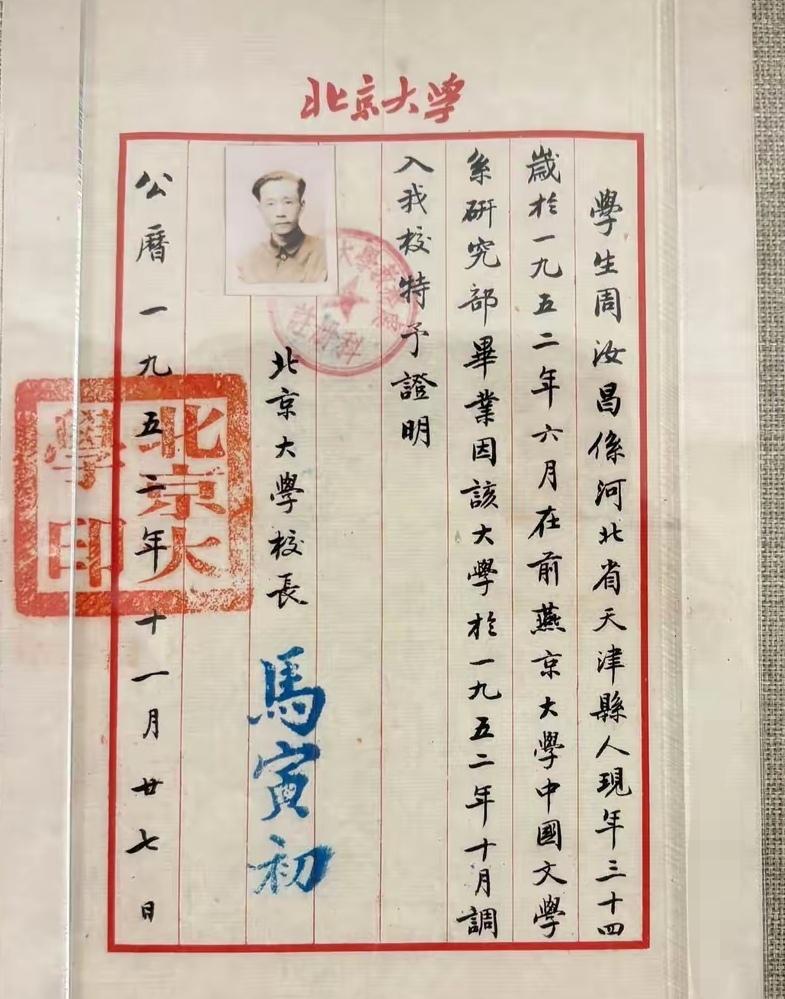 北京大学
學生周汝昌係河北省天津縣人現年三十四
歲於一九五二年六月在前燕京大學中國文學
系研究部畢業因該大學於一九五二年十月調
入我校特予證明
北京大學校長
馬寅初
公曆一九五二年十一月廿七日
北京大學印
註册科